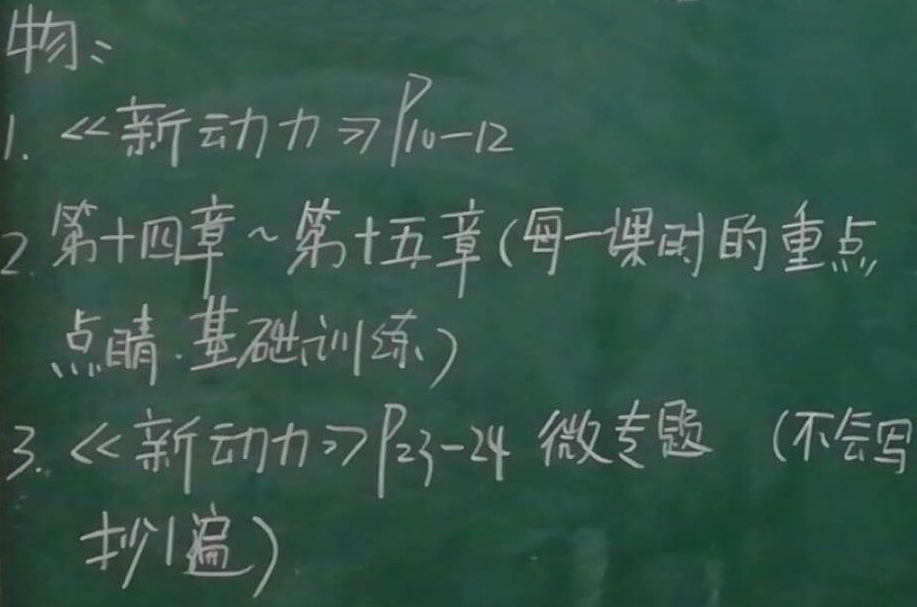 物：
1. 《新动力》P10-12
2. 第十四章~第十五章(每一课时的重点
点睛.基础训练)
3. 《新动力》P23-24 微专题 (不会写
抄1遍)